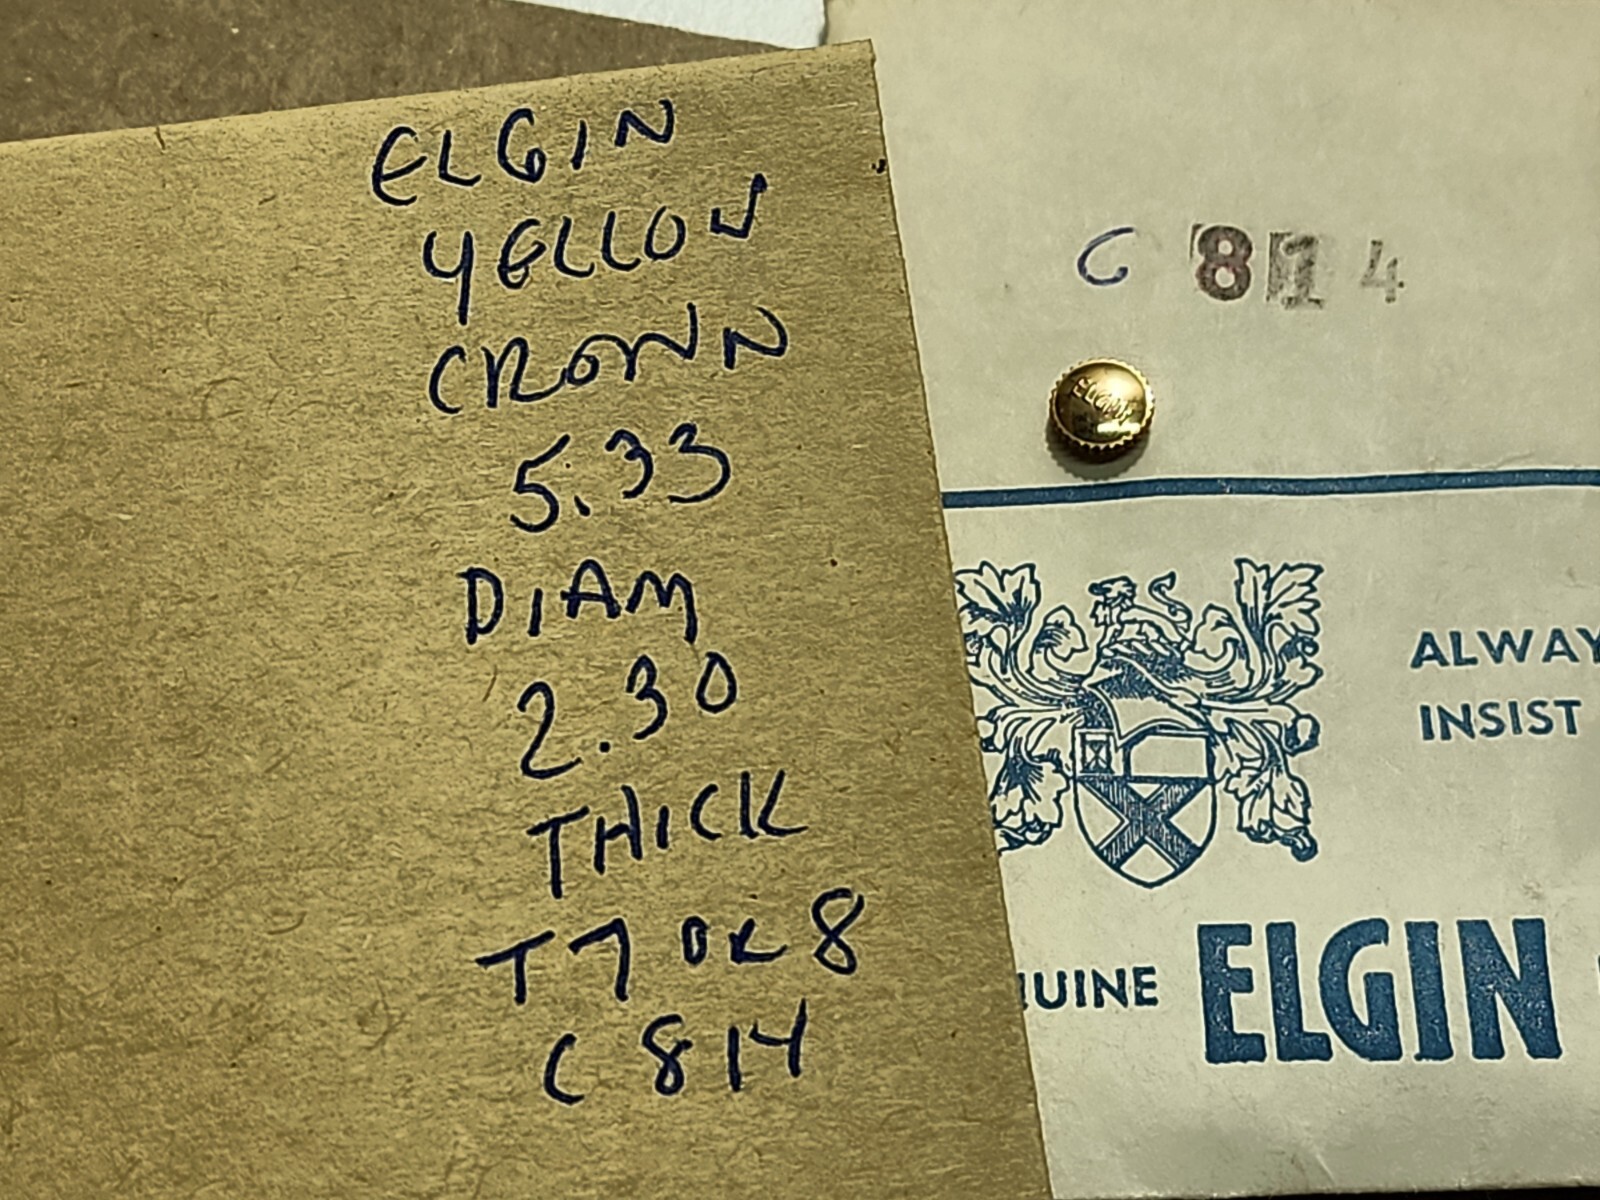 ELGIN
YELLOW
CROWN
5.33
DIAM
2.30
THICK
T7 OR 8
C 814
C 814
ELGIN
ALWAY
INSIST
NUINE ELGIN